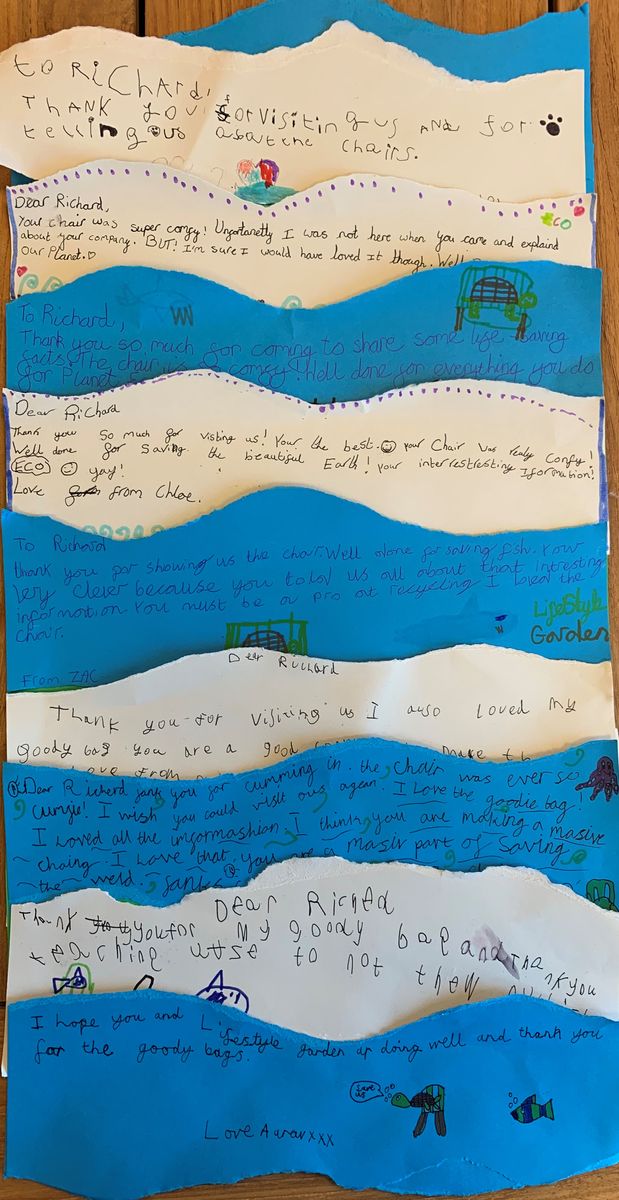 to RiCHARD,
THANK YOU forvisiting us AND for
telling us about the chairs.
Dear Richard,
ECO
Your chair was super comfy! Unfortanetly I was not here when you came and explaind
about your company. BUT! I'm sure I would have loved it though. Well
Our Planet.♡
To Richard,
Thank you so much for coming to share some life saving
facts! The chair was comfy! Well done for everything you do
for Planet
Dear Richard
Thank you so much for visting us! Your the best.☺ your Chair was realy Comfy!
Well done for Saving the beautiful Earth! your interrestresting Iformation!
ECO ☺ yay!
Love from Chloe.
To Richard
thank you for showing us the chair. Well done for saving fish. Your
Very clever because you told us all about that intresting
information You must be a pro at recycling I loved the
chair.
LifeStyle
Garden
From ZAC
Dear Richard
Thank you for visiting us I also loved my
goody bag you are a good
love from
Dear Richerd jank you for cumming in. the chair was ever so
cumfie! I wish you could visit ous agean. I Love the goodie bag!
I Loved all the imformashion I think you are making a masive
chaing. I Love that you are a masiv part of Saving
the werld.
Dear Riched
Thank you for my goody bag and Thank you
teaching utse to not thew
I hope you and Lifestyle garden ar doing well and thank you
for the goody bags.
save us
Love Aaravxxx